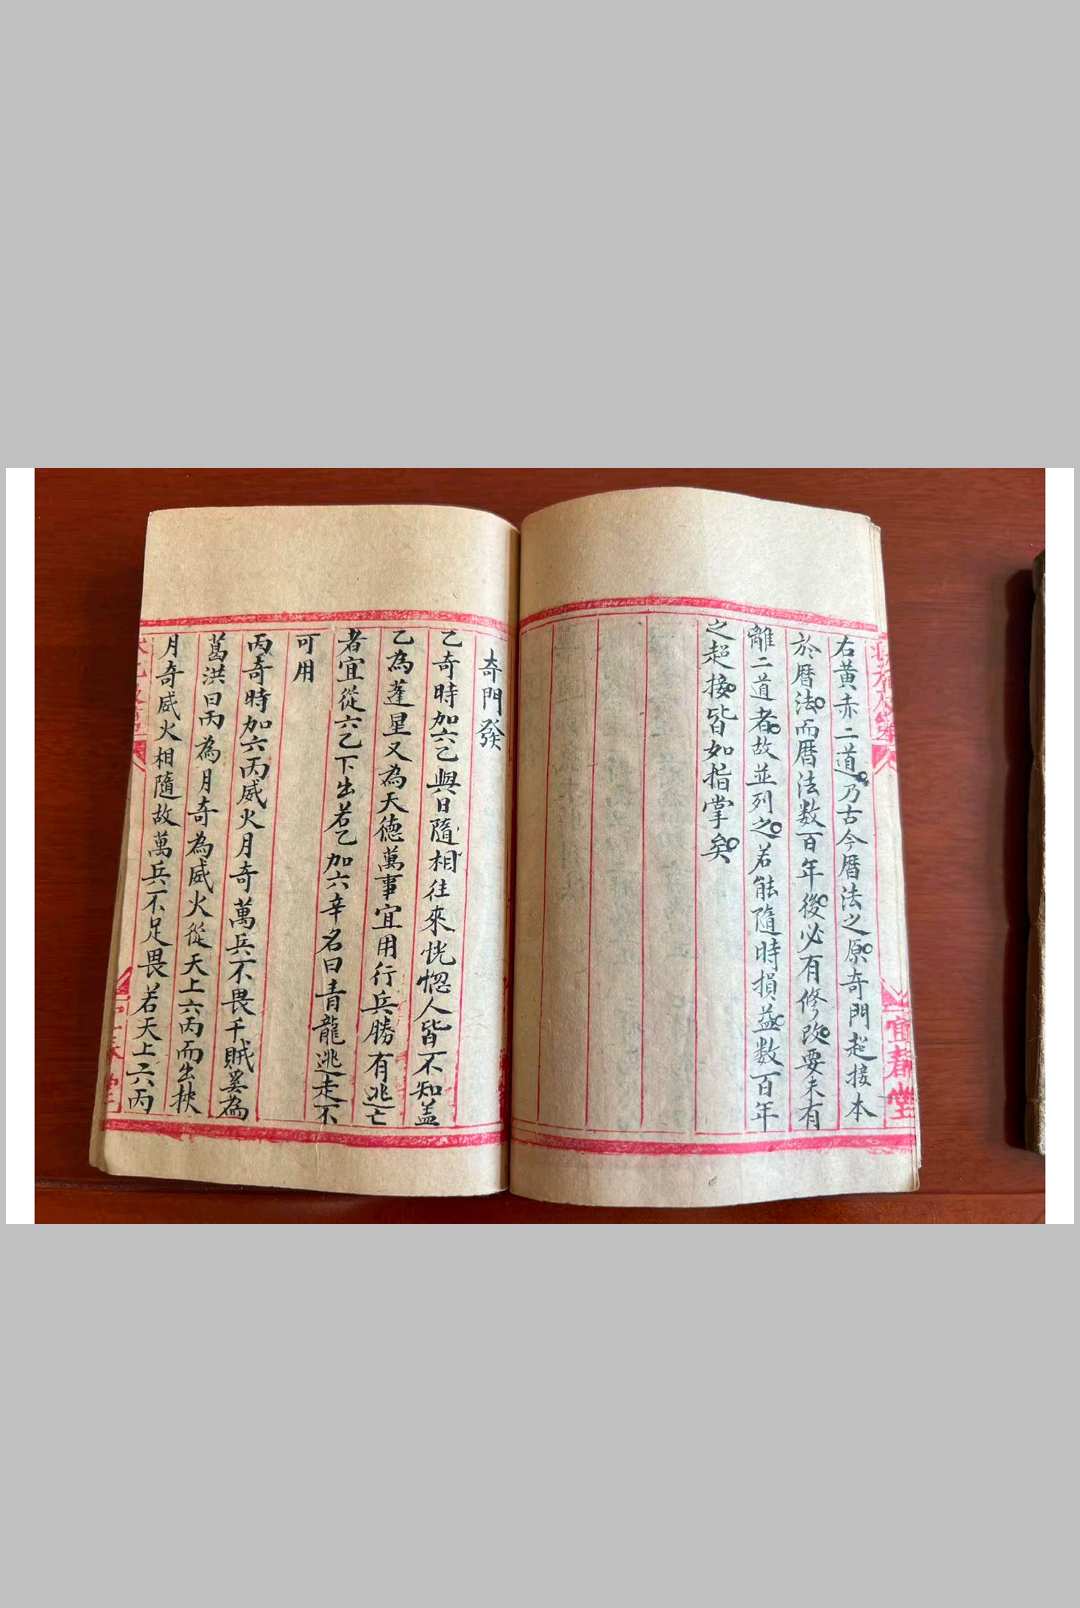 右黃赤二道乃古今暦法之原奇門超接本
於暦法而暦法数百年後必有修改要未有
離二道者故並列之若能隨時損益数百年
之超接皆如指掌矣
宜春堂
奇門發
乙奇時加六乙與日隨相往來恍惚人皆不知盖
乙為蓬星又為天德萬事宜用行兵勝有逃亡
者宜從六乙下出若乙加六辛名曰青龍逃走不
可用
丙奇時加六丙威火月奇萬兵不畏千賊奚為
葛洪曰丙為月奇為威火從天上六丙而出挾
月奇威火相隨故萬兵不足畏若天上六丙